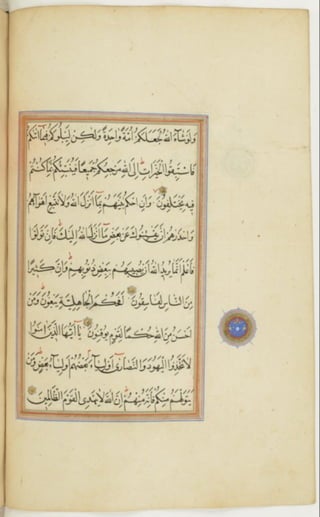 وَلَوْ شَاءَ اللهُ لَجَعَلَكُمْ أُمَّةً وَاحِدَةً وَلٰكِنْ لِيَبْلُوَكُمْ فِيمَا اٰتٰيكُمْ
فَاسْتَبِقُوا الْخَيْرَاتِ إِلَى اللهِ مَرْجِعُكُمْ جَمِيعًا فَيُنَبِّئُكُمْ بِمَا كُنْتُمْ
فِيهِ تَخْتَلِفُونَ وَأَنِ احْكُمْ بَيْنَهُمْ بِمَا أَنْزَلَ اللهُ وَلَا تَتَّبِعْ أَهْوَاءَهُمْ
وَاحْذَرْهُمْ أَنْ يَفْتِنُوكَ عَنْ بَعْضِ مَا أَنْزَلَ اللهُ إِلَيْكَ فَإِنْ تَوَلَّوْا
فَاعْلَمْ أَنَّمَا يُرِيدُ اللهُ أَنْ يُصِيبَهُمْ بِبَعْضِ ذُنُوبِهِمْ وَإِنَّ كَثِيرًا
مِنَ النَّاسِ لَفَاسِقُونَ أَفَحُكْمَ الْجَاهِلِيَّةِ يَبْغُونَ وَمَنْ
أَحْسَنُ مِنَ اللهِ حُكْمًا لِقَوْمٍ يُوقِنُونَ يَا أَيُّهَا الَّذِينَ اٰمَنُوا
لَا تَتَّخِذُوا الْيَهُودَ وَالنَّصَارٰى أَوْلِيَاءَ بَعْضُهُمْ أَوْلِيَاءُ بَعْضٍ وَمَنْ
يَتَوَلَّهُمْ مِنْكُمْ فَإِنَّهُ مِنْهُمْ إِنَّ اللهَ لَا يَهْدِي الْقَوْمَ الظَّالِمِينَ